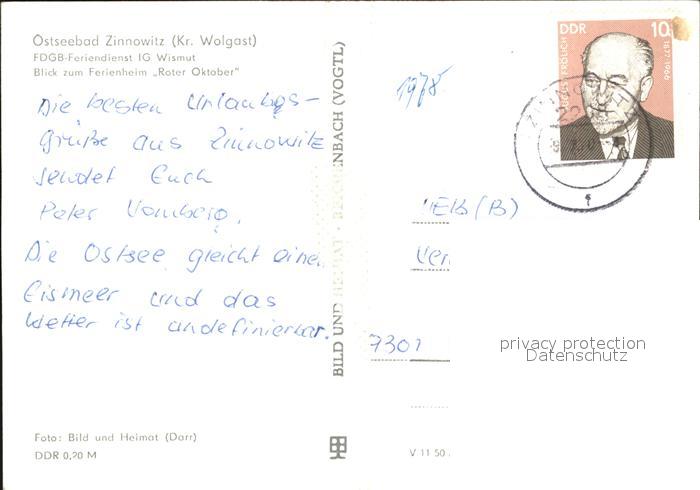 Ostseebad Zinnowitz (Kr. Wolgast)
FDGB-Feriendienst IG Wismut
Blick zum Ferienheim „Roter Oktober"
Die besten Urlaubs-
grüße aus Zinnowitz
sendet Euch
Peter
Die Ostsee gleicht einem
Eismeer und das
Wetter ist undefinierbar.
Foto: Bild und Heimat (Darr)
DDR 0,20 M
BILD UND HEIMAT · REICHENBACH (VOGTL)
1978
DDR 10
1877-1966
(B)
7301
privacy protection
Datenschutz
V 11 50